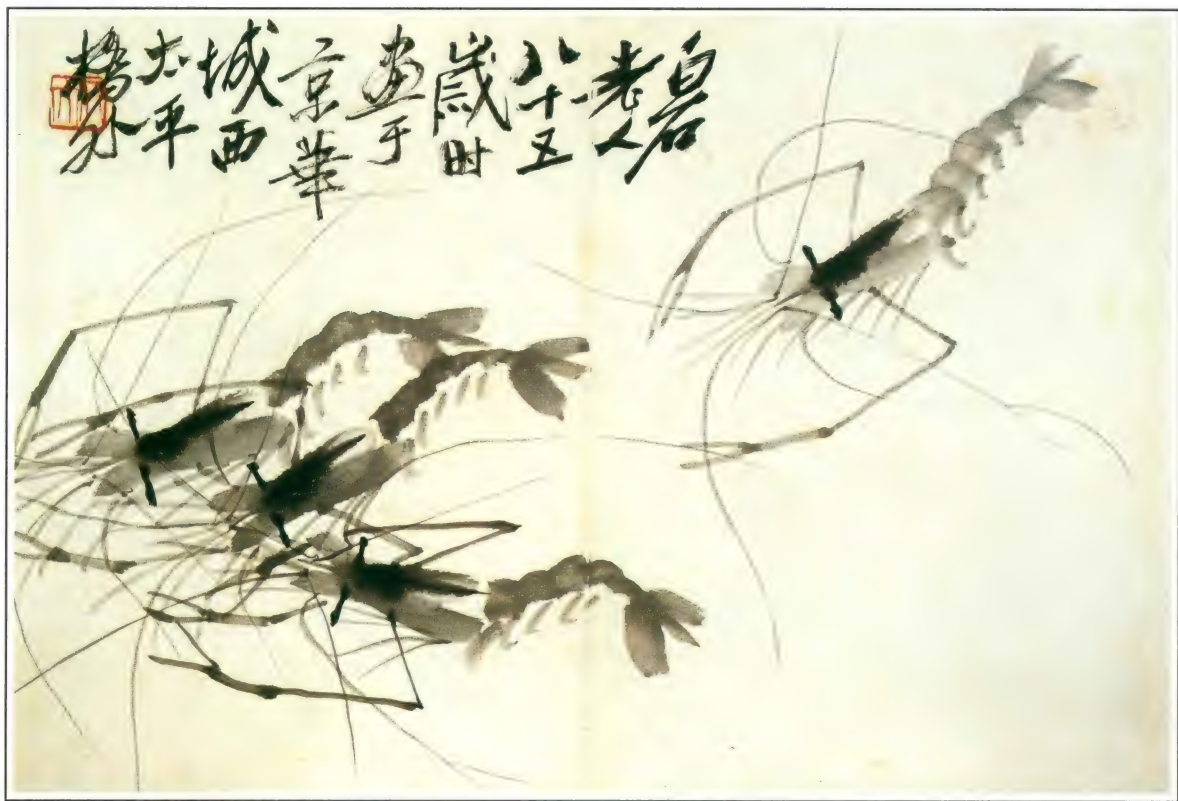 白石
老人
八十五
歲时
畫于
京華
城西
太平
橋外